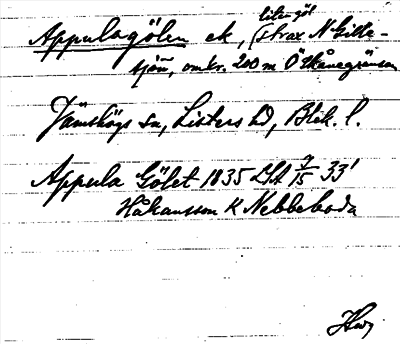 liten göl
Appulagölen ek, (strax N Gille-
sjön, omkr. 200 m Ö Skånegränsen
Jämshögs sn, Listers hd, Blek. l.
Appula Gölet 1835 LSA 7/15 33'
Håkansson K Nebbeboda